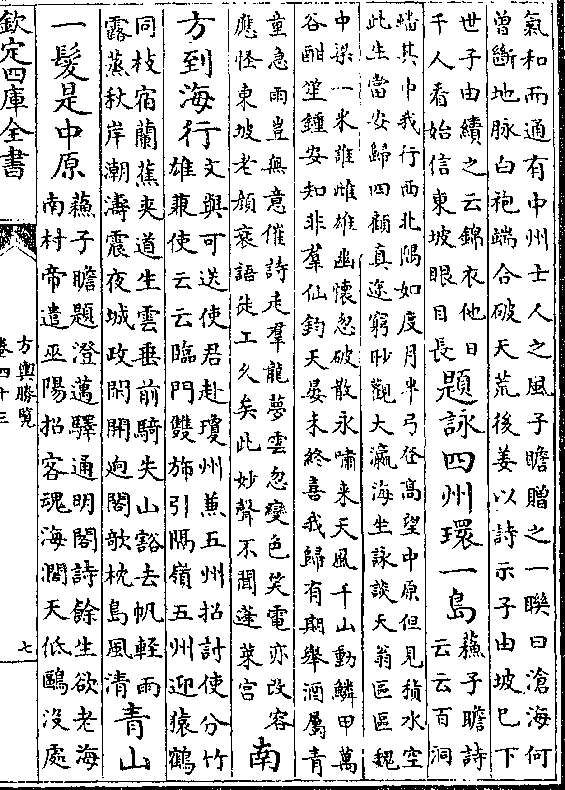 氣和而通有中州士人之風子瞻贈之一聯曰滄海何
曾斷地脉白袍端合破天荒後姜以詩示子由坡已下
世子由續之云錦衣他日
千人看始信東坡眼目長
題詠四州環一島
蘇子瞻詩
云云百洞
蟠其中我行西北隅如度月半弓登高望中原但見積水空
此生當安歸四顧真途窮眇觀大瀛海坐詠談天翁區區魏
中梁一米誰雌雄幽懷忽破散永嘯来天風千山動鱗甲萬
谷酣笙鍾安知非羣仙鈞天晏未終喜我歸有期舉酒屬青
童急雨豈無意催詩走羣龍夢雲忽變色笑電亦改容
應怪東坡老顔衰語徒工久矣此妙聲不聞蓬萊宫
南
方到海行
文與可送使君赴瓊州兼五州招討使分竹
雄兼使云云臨門雙斾引隔嶺五州迎猿鶴
同枝宿蘭蕉夾道生雲垂前騎失山豁去帆輕雨
露蒸秋岸潮濤震夜城政閑開逈閣欹枕島風清
青山
一髮是中原
蘇子瞻題澄邁驛通明閣詩餘生欲老海
南村帝遣巫陽招客魂海濶天低鷗没處
欽定四庫全書
方輿勝覽
卷四十三
七